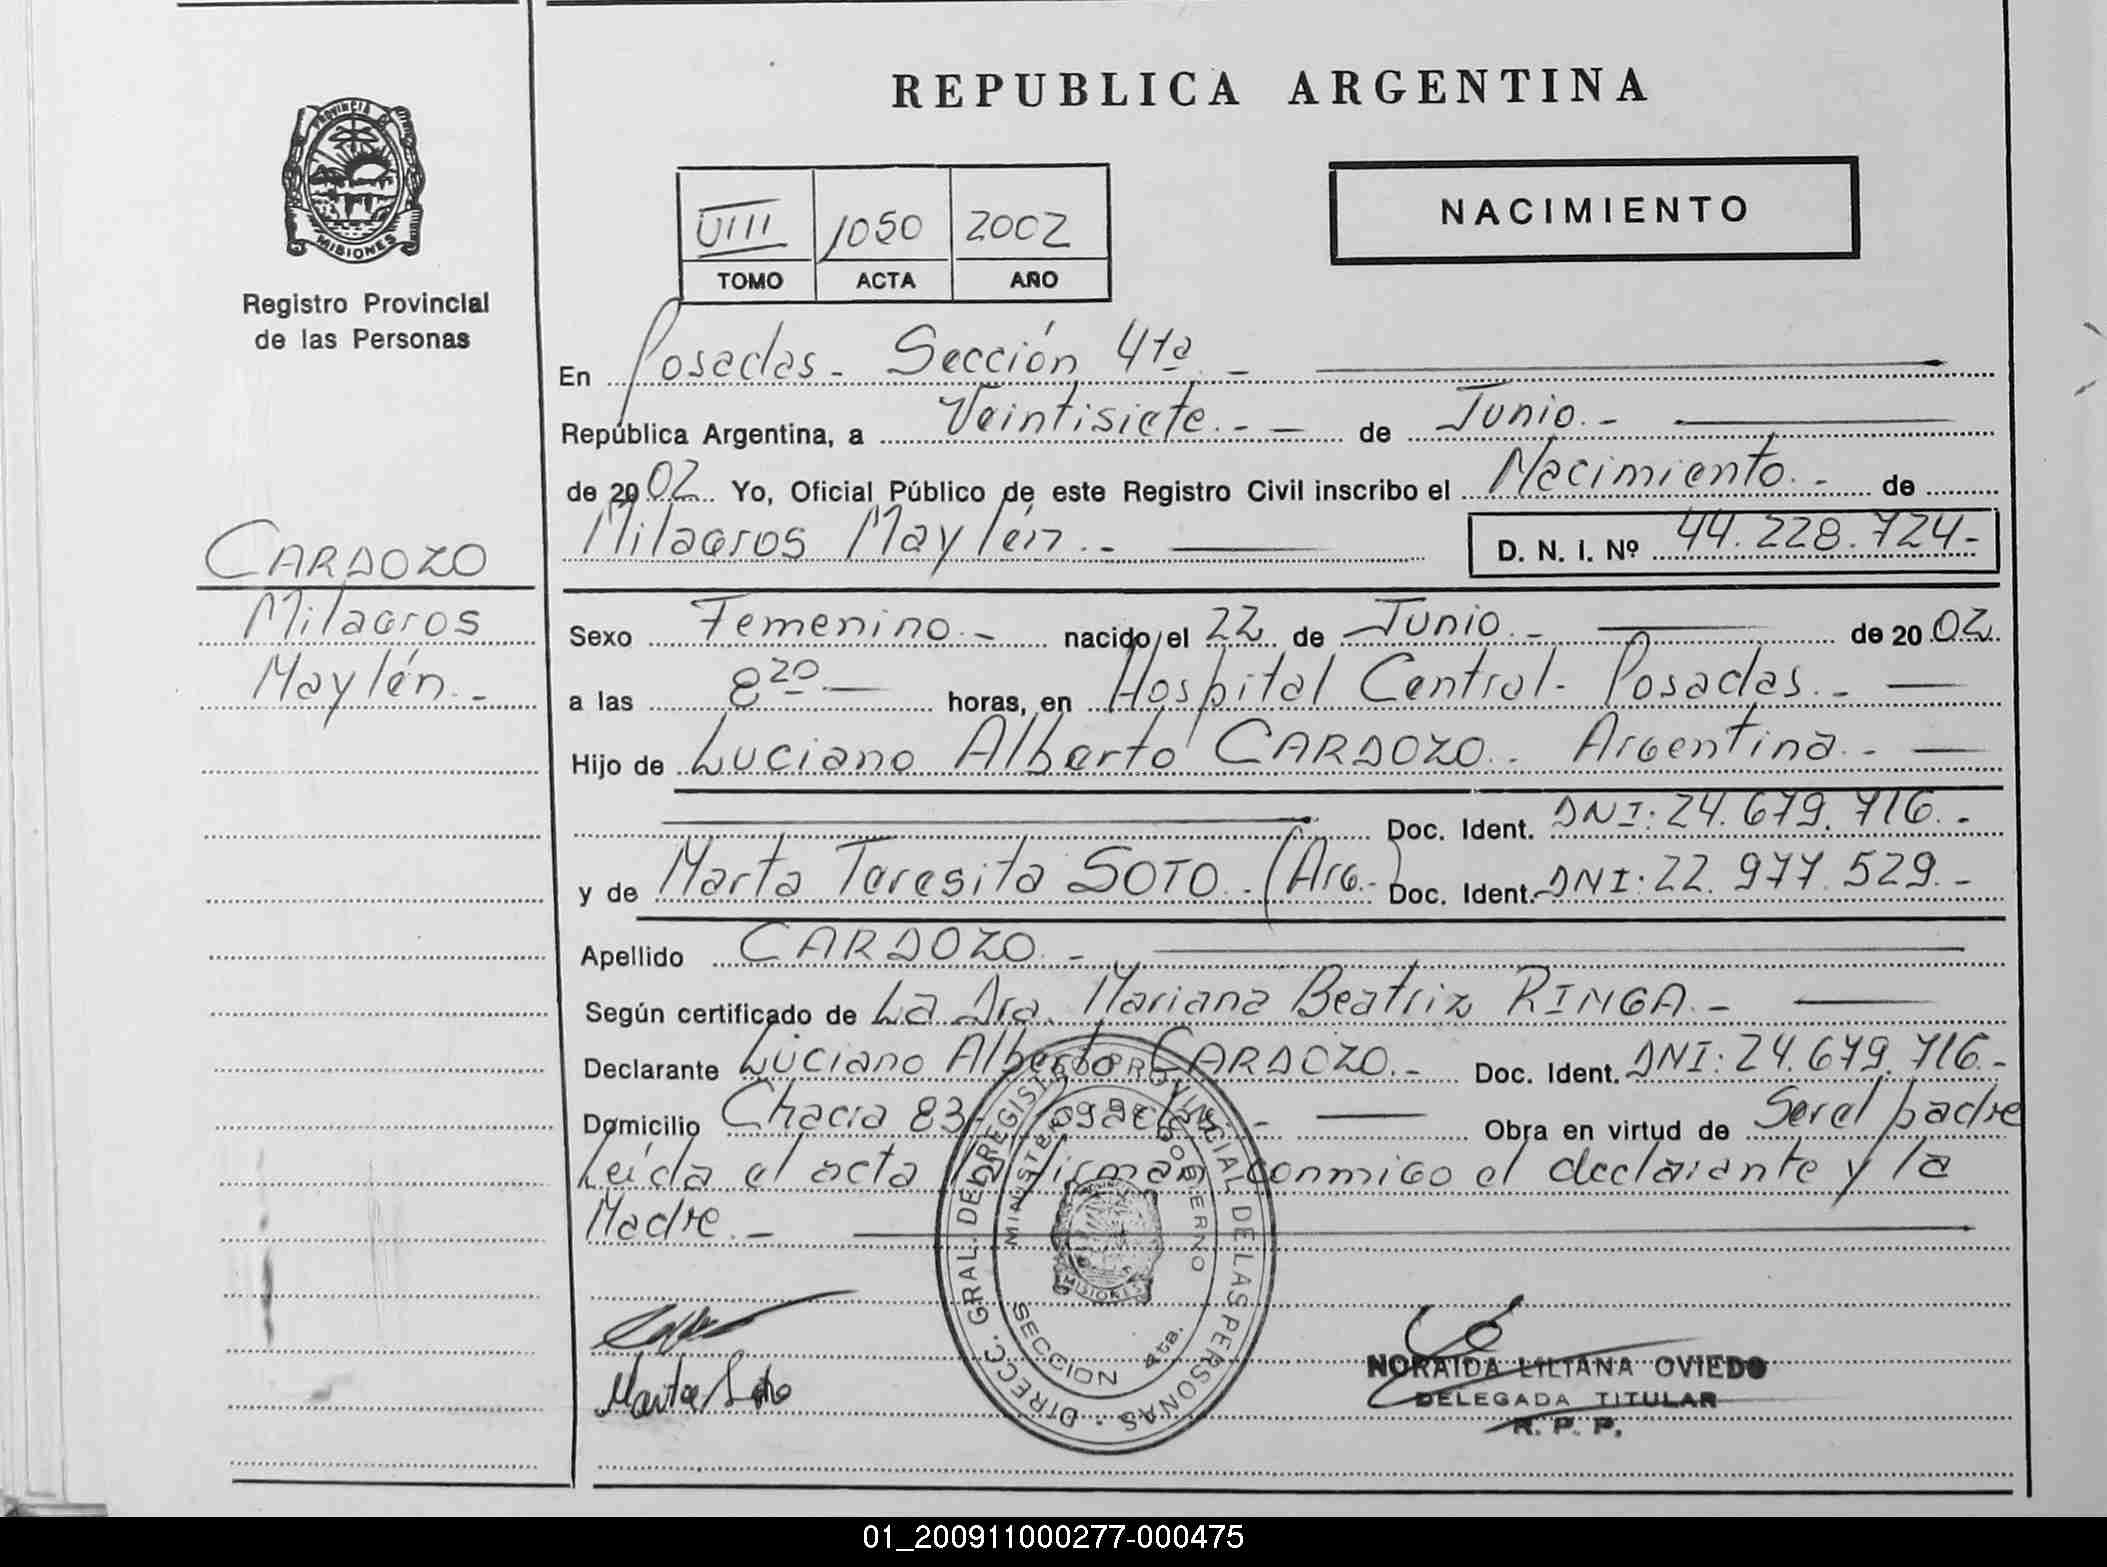 REPUBLICA ARGENTINA
PROVINCIA DE MISIONES
Registro Provincial
de las Personas
VIII 1050 2002
TOMO ACTA AÑO
NACIMIENTO
En Posadas - Sección 4ta. -
República Argentina, a Veintisiete. - - de Junio. -
de 2002 Yo, Oficial Público de este Registro Civil inscribo el Nacimiento. - de
Milagros Maylén. - D. N. I. Nº 44.228.724-
CARDOZO
Milagros
Maylén. -
Sexo Femenino. - nacido el 22 de Junio. - de 2002.
a las 8 20 horas, en Hospital Central - Posadas. -
Hijo de Luciano Alberto CARDOZO. Argentina. -
Doc. Ident. DNI: 24.679.716. -
y de Marta Teresita SOTO. (Arg.-) Doc. Ident. DNI: 22.977.529. -
Apellido CARDOZO. -
Según certificado de La Dra. Mariana Beatriz RINGA. -
Declarante Luciano Alberto CARDOZO. - Doc. Ident. DNI: 24.679.716. -
Domicilio Chacra 83- Posadas. - Obra en virtud de Ser el padre
Leída el acta la firman conmigo el declarante y la
Madre. -
DIRECC. GRAL. DEL REGISTRO PROVINCIAL DE LAS PERSONAS -
MINISTERIO DE GOBIERNO
MISIONES
SECCION 4ta.
Marta Soto
NORAIDA LILIANA OVIEDO
DELEGADA TITULAR
R. P. P.
01_200911000277-000475